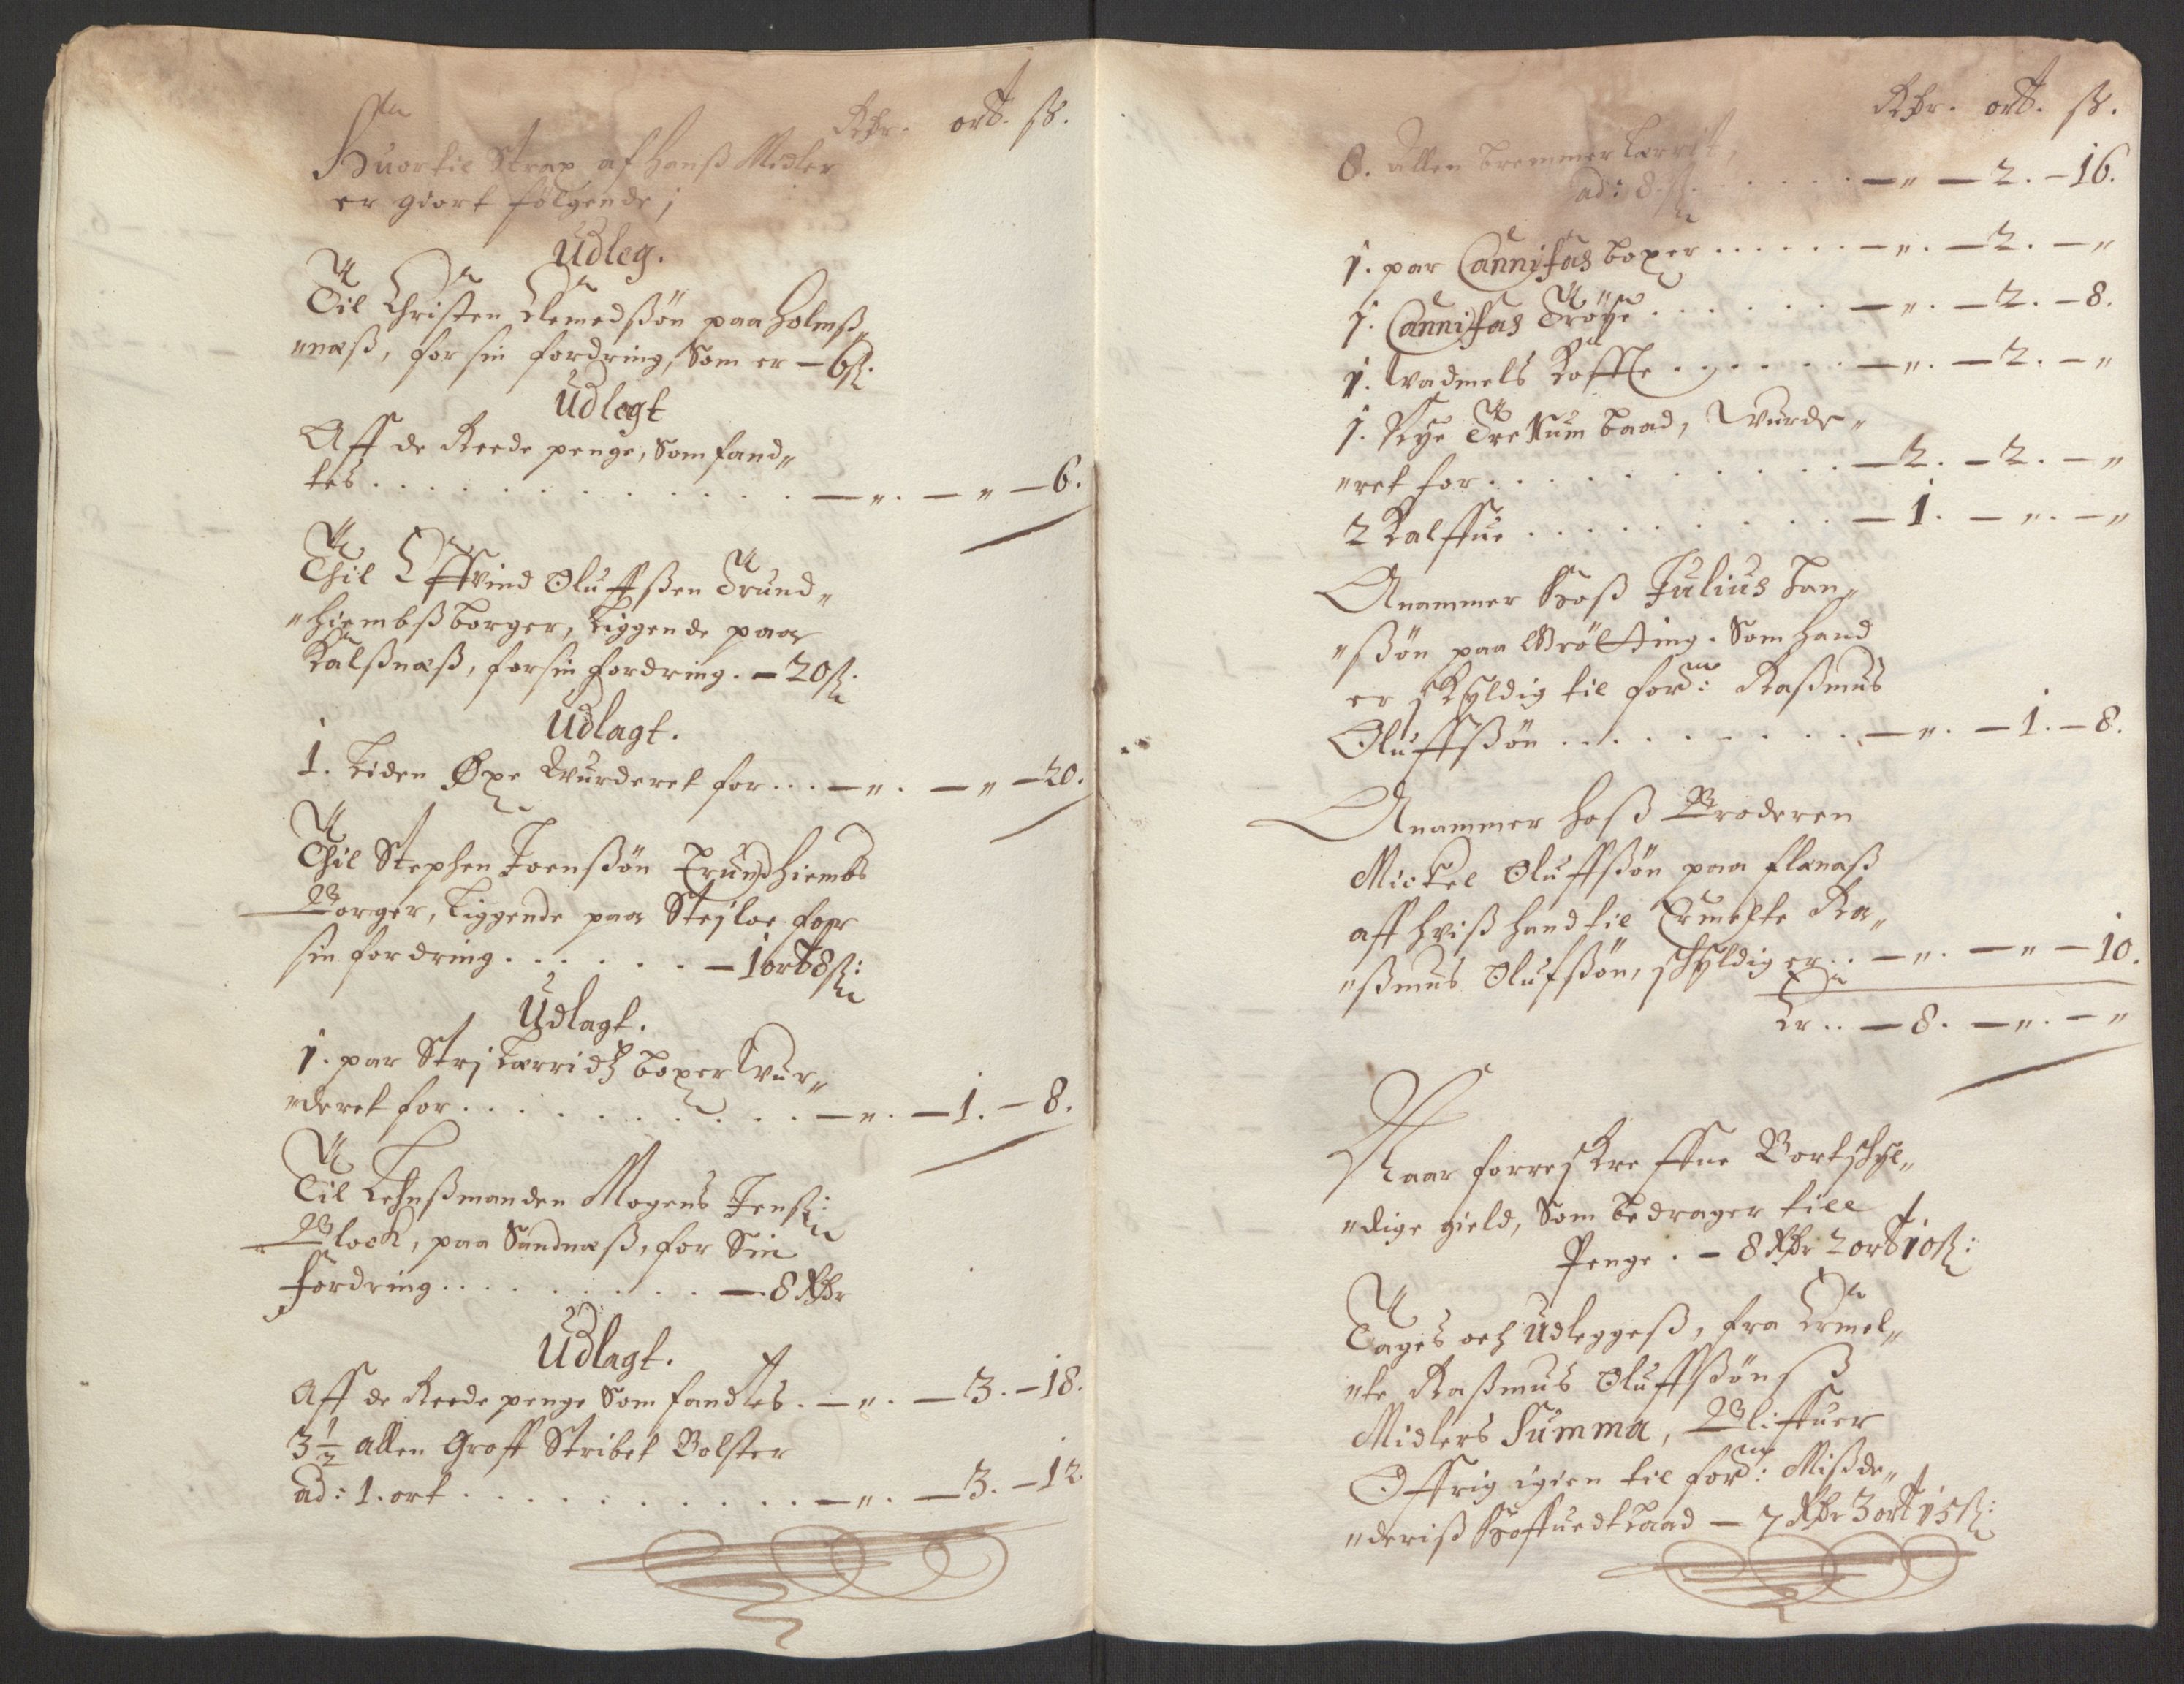 Rdr. ort. ß.
Huortil Strax af hanß Midler
er giort følgende;
Udleg.
Til Christen Clemedßøn paa Holmß„
„næß, for sin fordring, Som er – 6ß:
Udlagt
Aff de Reede penge, Som fand„
tes . . . . . . . . . . . . — „. — „ — 6.
Thil Effvind Oluffßen Trund„
„hiembß borger, Liggende paa
Kalßnæß, for sin fordring. – 20ß:
Udlagt.
1. Liden Øxe Wurderet for . . . — „. — „ — 20.
Thil Stephen Joenßøn Trundhiembs
Borger, Liggende paa Stejloe for
sin fordring . . . . . . – 1 ort 8ß:
Udlagt.
1. par Strj Lærridz boxer Wur„
„deret for . . . . . . . . . . — „. — 1. — 8.
Til Lehnßmanden Mogens Jenß:
Block, paa Sandnæß, for Sin
fordring . . . . . . . . . — 8 Rdr
Udlagt.
Aff de Reede penge Som fandtes. — „. — 3. — 18.
3½ allen Groff Stribet Bolster
ad: 1. ort . . . . . . . . . . . — „. — 3. — 12.
Rdr. ort. ß.
8. allen bremmer Lærrit,
ad: 8 ß . . . . . — „ — 2. — 16.
1. par Cannifas boxer . . . . . . — „. — 2. — „
1. Cannifas Trøye . . . . . . — „. — 2. — 8.
1. Wadmels Koffte . . . . . . — „. — 2. — „
1. Nye Trerum baad, Wurde„
„ret for . . . . . . . . . . — 2. — 2. — „
2 Kalffue . . . . . . . . . — 1. — „. — „
Anammer hoß Julius Jan„
„ßøn paa Grøtting. Som hand
er skyldig til ford: Raßmus
Oluffßøn . . . . . . . . . — „. — 1. — 8.
Anammer hoß Broderen
Mickel Oluffßøn paa Flanæß
aff hviß hand til Ermelte Ra„
„ßmus Olufßøn, schyldig er . . — „. — „ — 10.
Er . . — 8. — „. — „
Naar forreskreffne Bortschyl„
„dige gield, Som bedrager till
Penge . – 8 Rdr 2 ort 10ß:
Tages och Udleggeß, fra Ermel„
„te Raßmus Oluffßønß
Midlers Summa, Bliffuer
Offrig igien til ford: Mißde„
„deriß Hoffuedtlaad – 7 Rdr 3 ort 15ß: